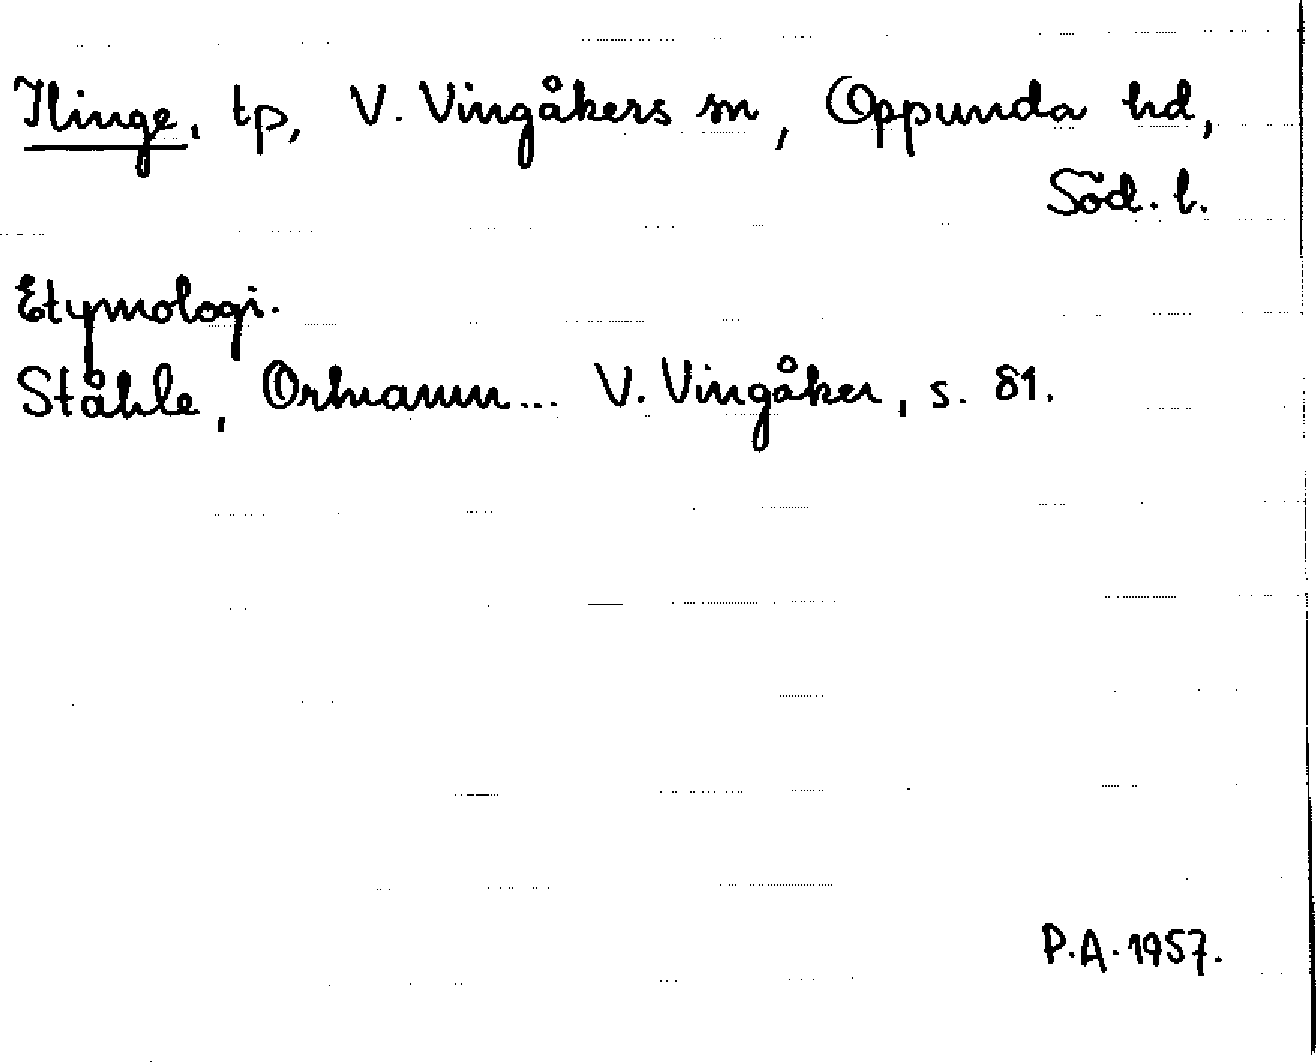 Ilinge, tp, V. Vingåkers sn, Oppunda hd,
Söd. l.
Etymologi.
Ståhle, Ortnamn... V. Vingåker, s. 81.
P.A. 1957.